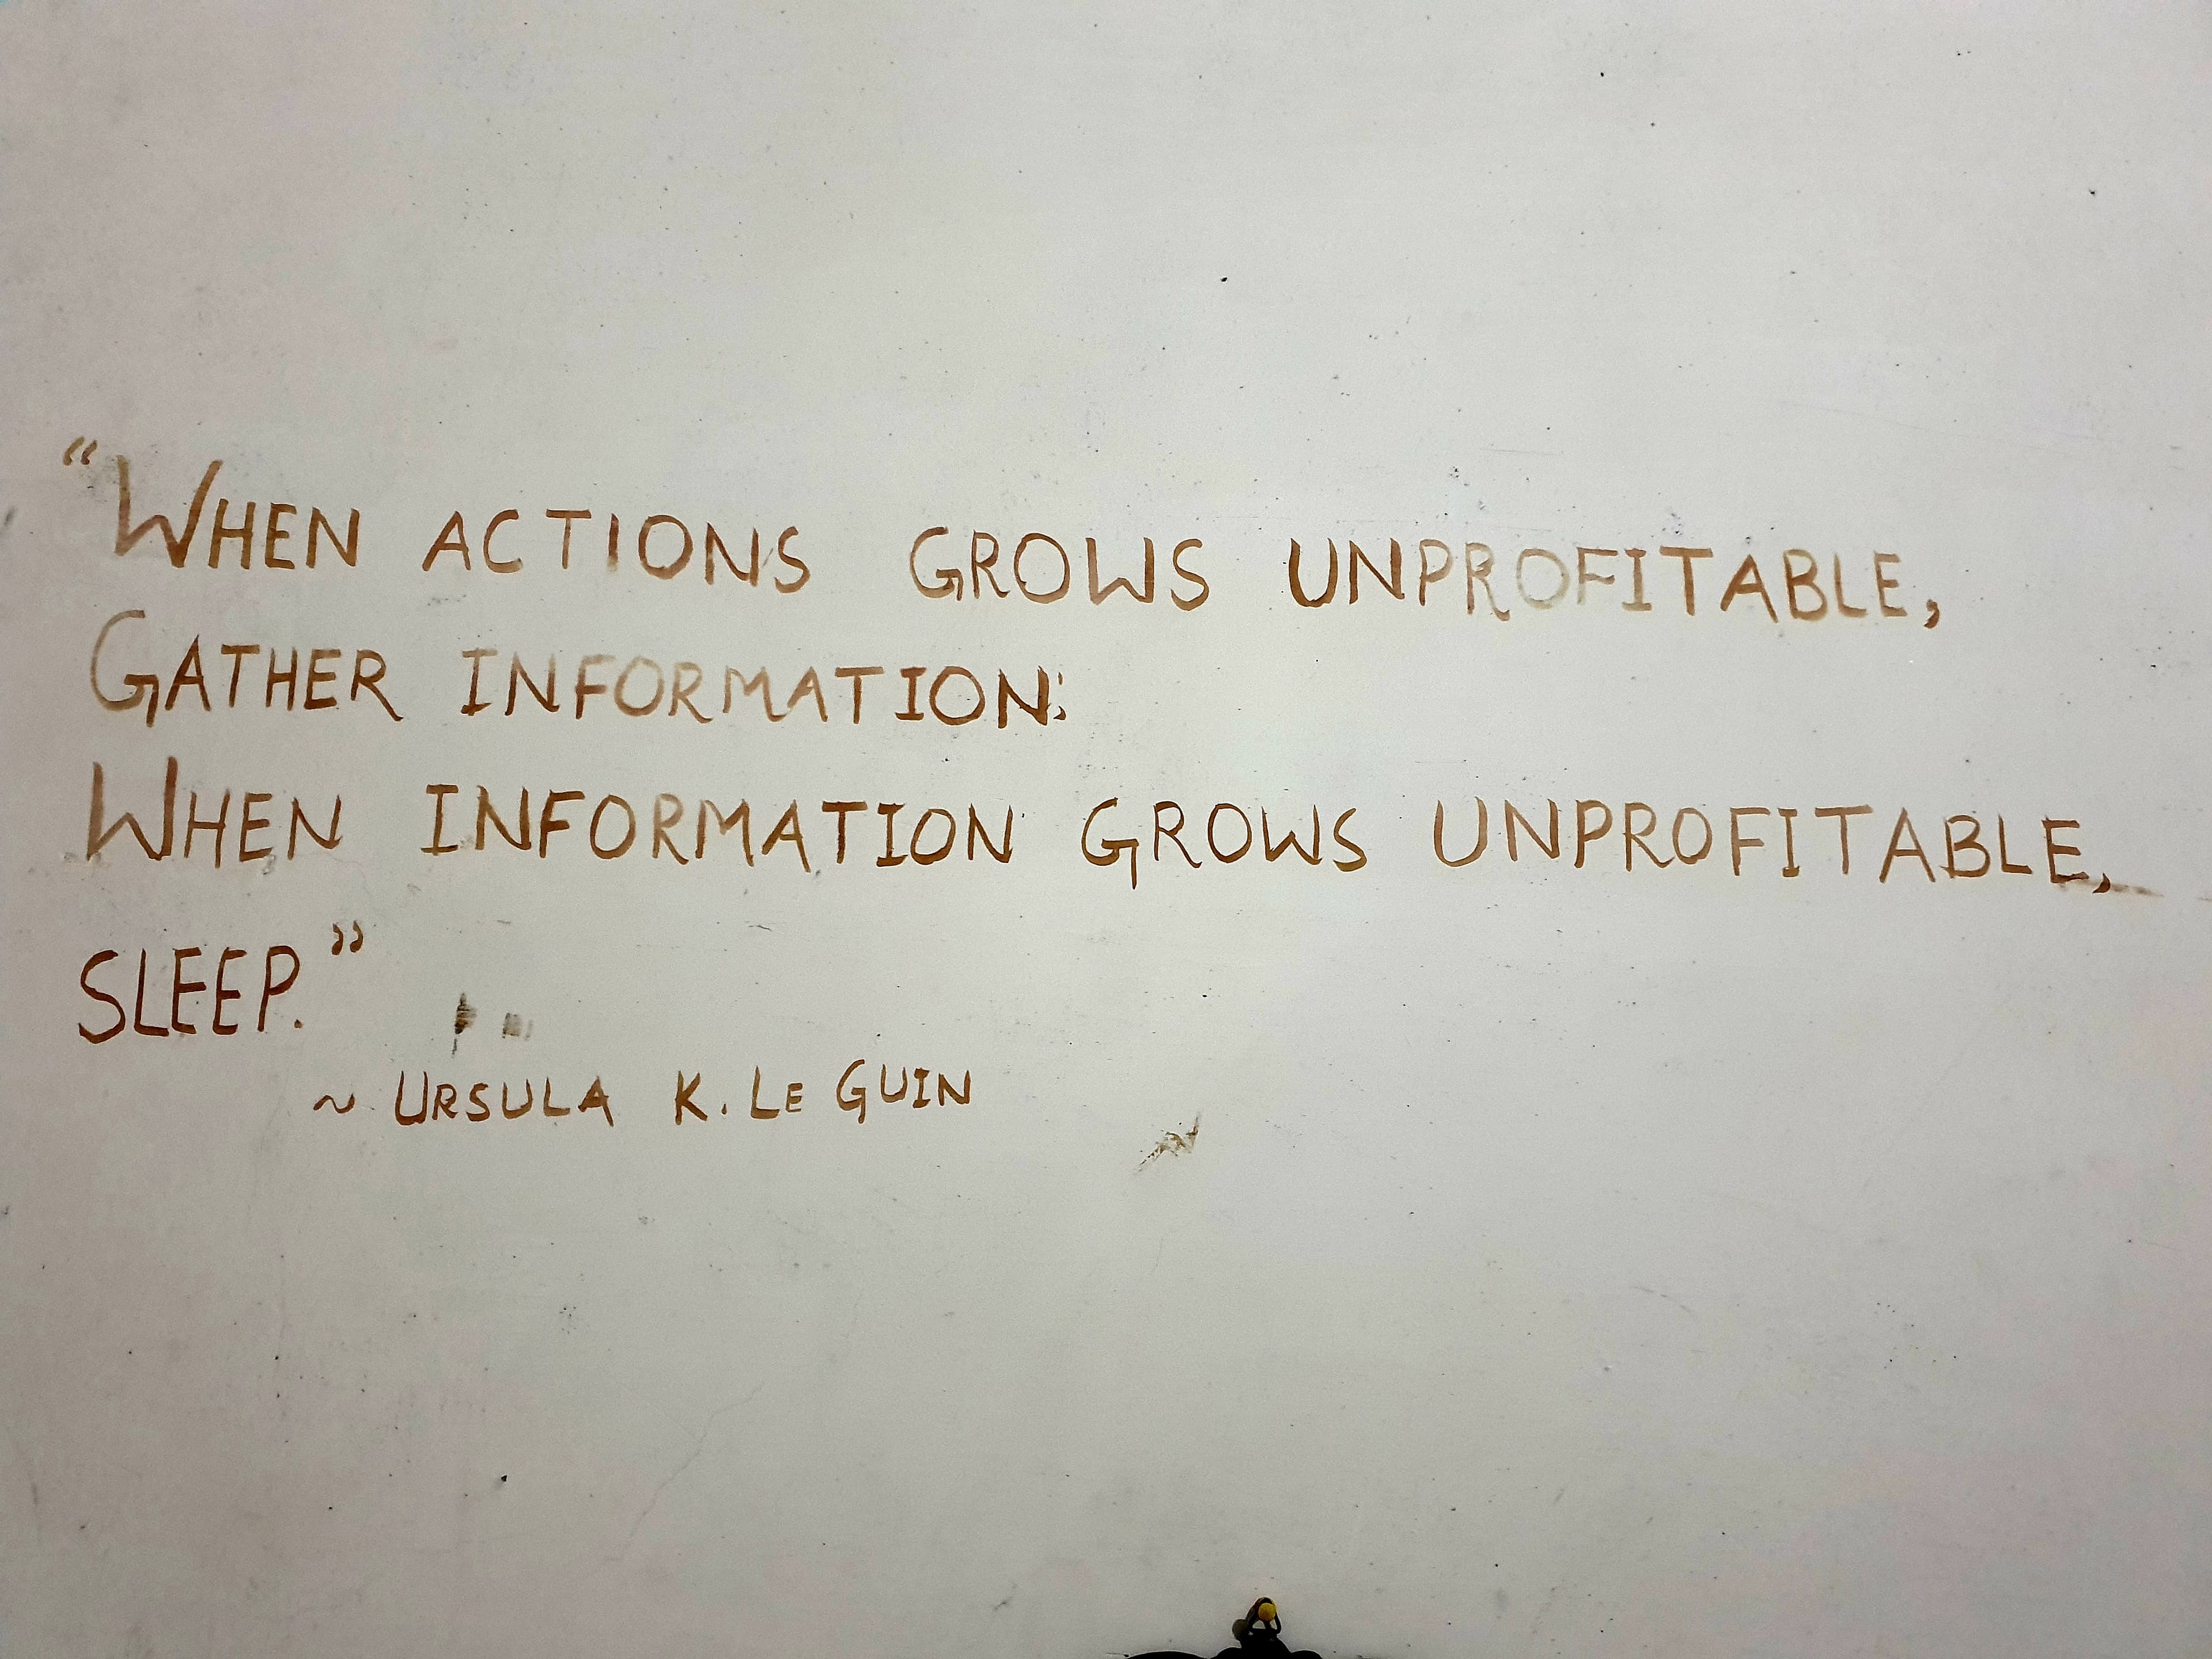 “WHEN ACTIONS GROWS UNPROFITABLE,
GATHER INFORMATION;
WHEN INFORMATION GROWS UNPROFITABLE,
SLEEP.”
~ URSULA K. LE GUIN